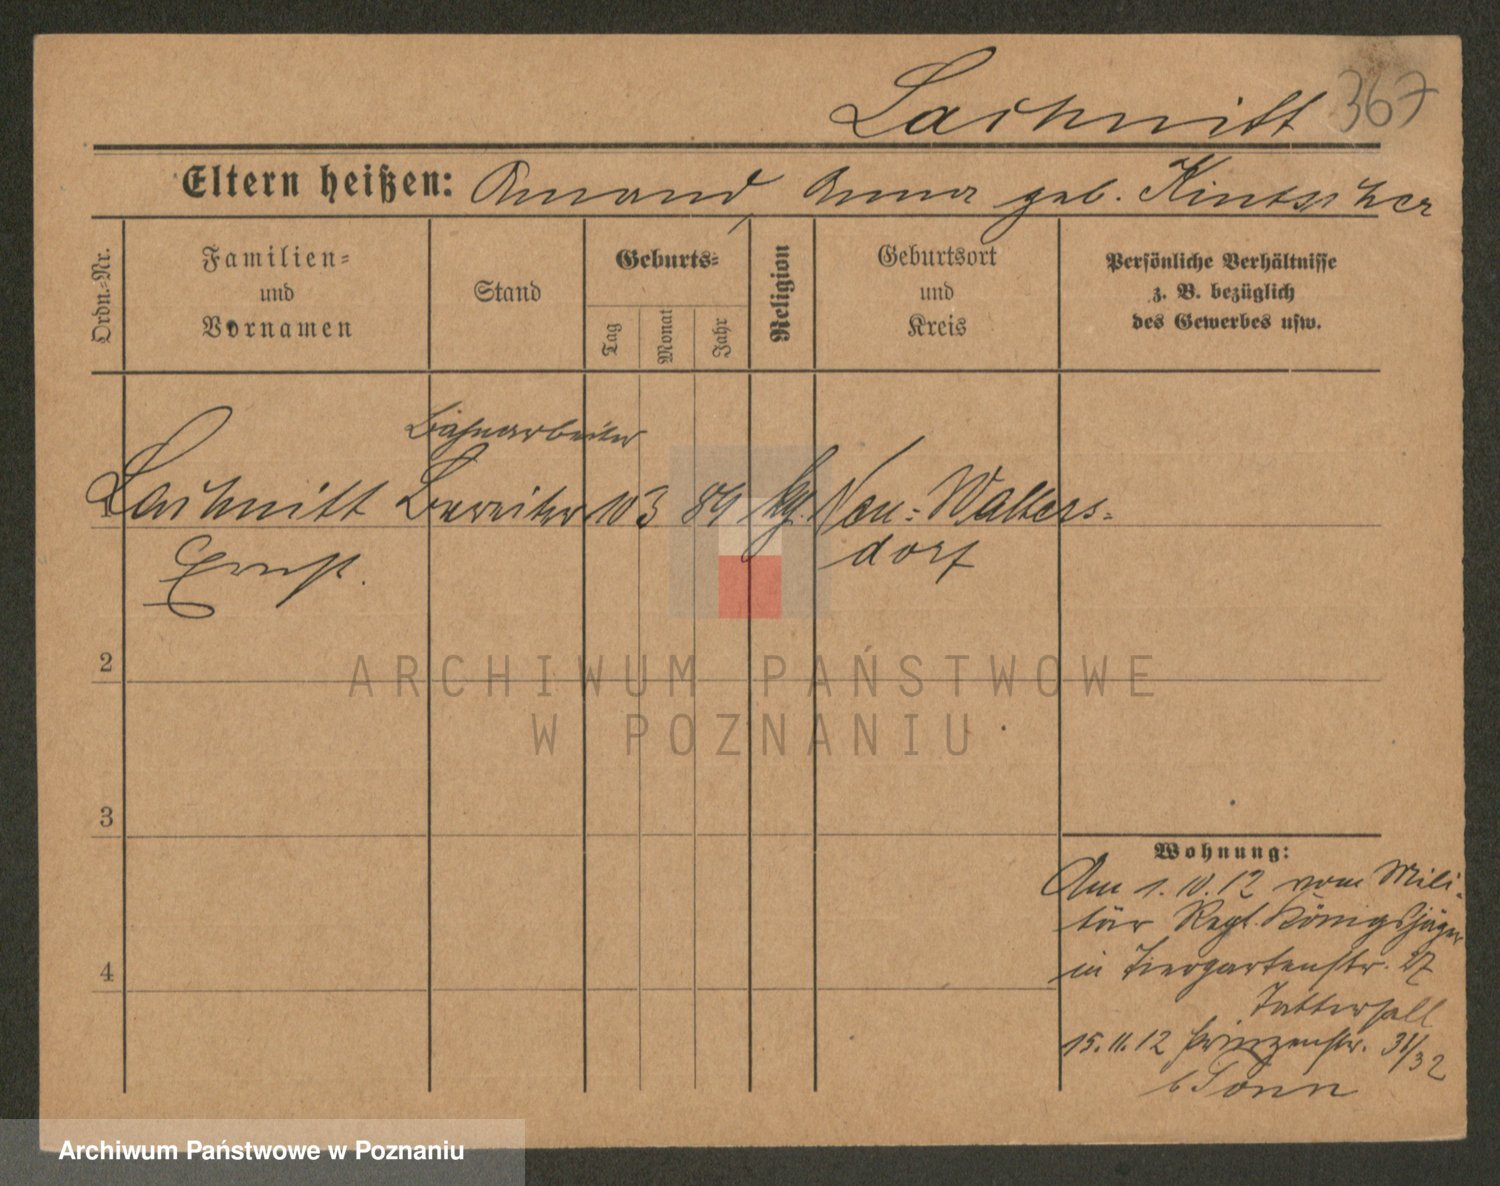 Lachnitt 367
Eltern heißen: Amand, Anna geb. Kintscher
Ordn.-Nr.
Familien-
und
Vornamen
Stand
Geburts-
Tag
Monat
Jahr
Religion
Geburtsort
und
Kreis
Persönliche Verhältnisse
z. B. bezüglich
des Gewerbes usw.
Bahnarbeiter
1 Lachnitt Bereiter 10 3 89 kg. Neu-Walters-
Ernst. dorf
2
ARCHIWUM PAŃSTWOWE
W POZNANIU
3
Wohnung:
Am 1.10.12 vom Mili-
tär Regt. Königsjäger
in Tiergartenstr. 27
4
Tattersall
15.11.12 Prinzenstr. 31/32
b Tonn
Archiwum Państwowe w Poznaniu